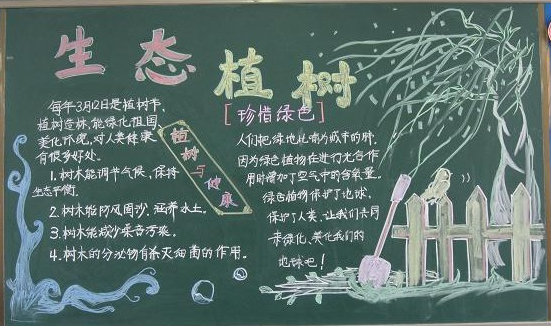 生态植树
每年3月12日是植树节,
植树造林,能绿化祖国
美化环境,对人类健康
有很多好处。
1.树木能调节气候,保持
生态平衡.
2.树木能防风固沙,涵养水土。
3.树木能减少噪音污染。
4.树木的分泌物有杀灭细菌的作用。
植树与健康
[珍惜绿色]
人们把绿地比喻为城市的肺.
因为绿色植物在进行光合作
用时增加了空气中的含氧量。
绿色植物保护了地球,
保护了人类,让我们共同
来绿化、美化我们的
地球吧!